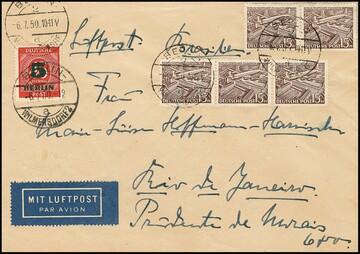 BERLIN
6.7.50.10-11V
DEUTSCHE POST
5
BERLIN
WILMERSDORF 2
a
15 DEUTSCHE POST
15 DEUTSCHE POST
DEUTSCHE POST 15
DEUTSCHE POST 15
DEUTSCHE POST 15
Luftpost. Brasilien
Frau
Hoffmann-Harnisch
MIT LUFTPOST
PAR AVION
Rio de Janeiro.
Prudente de Morais